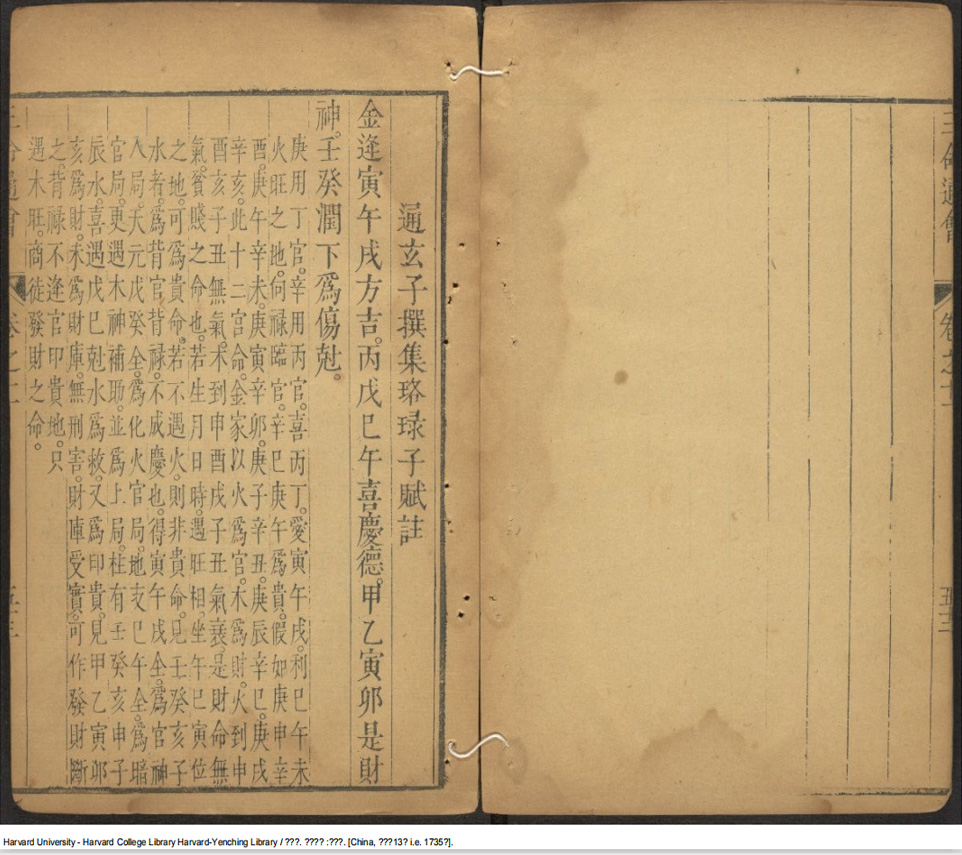 三命通會
卷之二
五三
通玄子撰集珞琭子賦註
金逢寅午戌方吉。丙戊巳午喜慶德。甲乙寅卯是財
神。壬癸潤下爲傷尅。
庚用丁官。辛用丙官。喜丙丁。愛寅午戌。利巳午未
火旺之地。何祿臨官。辛巳庚午爲貴。假如庚申辛
酉。庚午辛未。庚寅辛卯。庚子辛丑。庚辰辛巳。庚戌
辛亥。此十二宮命。金家以火爲官。木爲財。火到申
酉亥子丑無氣。木到申酉戌子丑氣衰。是財命無
氣。貧賤之命也。若生月日時。遇旺相。坐午巳寅位
之地。可爲貴命。若不遇火。則非貴命。見壬癸亥子
水者。爲背官背祿。不成慶也。得寅午戌全。爲官神
入局。天元戊癸全。爲化火官局。地支巳午全。爲暗
官局。更遇木神補助。並爲上局。柱有壬癸亥申子
辰水。喜遇戊己尅水爲救。又爲印貴。見甲乙寅卯
亥爲財。未爲財庫。無刑害。財庫受實。可作發財斷
之。背祿不逢官印貴地。只
遇木旺。商徒發財之命。
Harvard University - Harvard College Library Harvard-Yenching Library / ???. ???? :???. [China, ???13? i.e. 1735?].